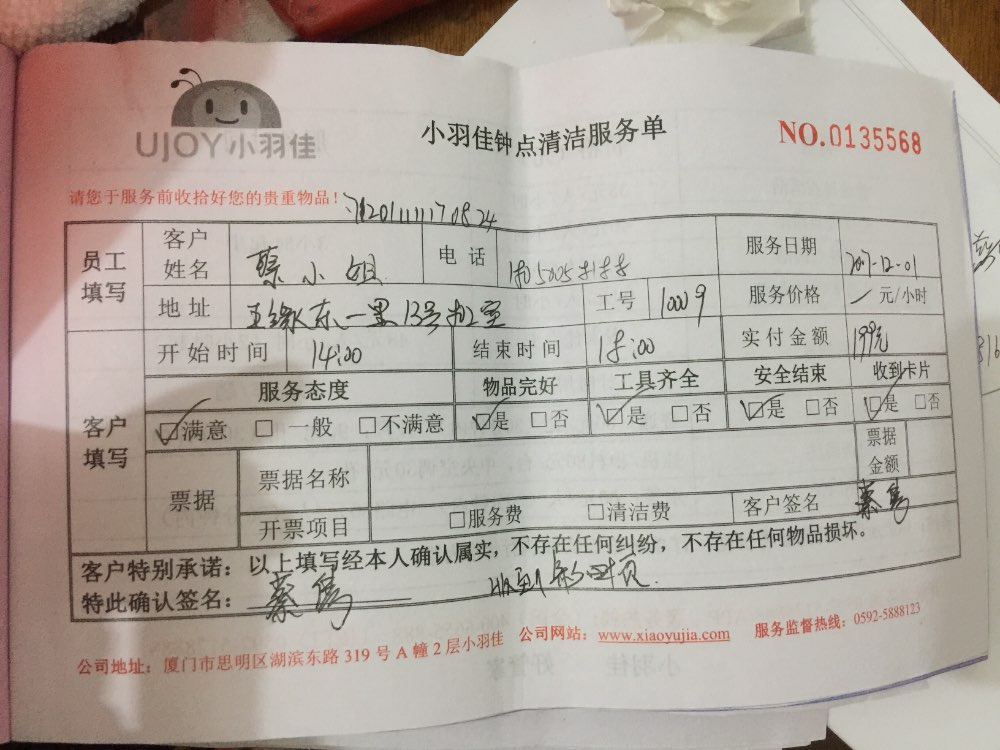 UJOY小羽佳
小羽佳钟点清洁服务单
NO.0135568
请您于服务前收拾好您的贵重物品！
员工填写 客户姓名 蔡小姐 电话 服务日期 2017-12-01
地址 工号 10009 服务价格 元/小时
开始时间 14:00 结束时间 18:00 实付金额 199元
客户填写 服务态度 物品完好 工具齐全 安全结束 收到卡片
☑满意 □一般 □不满意 ☑是 □否 ☑是 □否 ☑是 □否 ☑是 □否
票据 票据名称 票据金额
开票项目 □服务费 □清洁费 客户签名
客户特别承诺：以上填写经本人确认属实，不存在任何纠纷，不存在任何物品损坏。
特此确认签名：
公司地址：厦门市思明区湖滨东路 319 号 A 幢 2 层小羽佳 公司网站：www.xiaoyujia.com 服务监督热线：0592-5888123